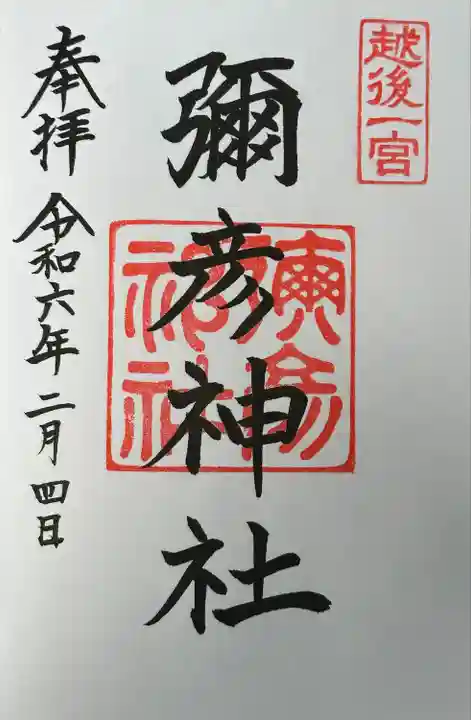 越後一宮
彌彦神社
彌彦
神社
奉拝 令和六年二月四日